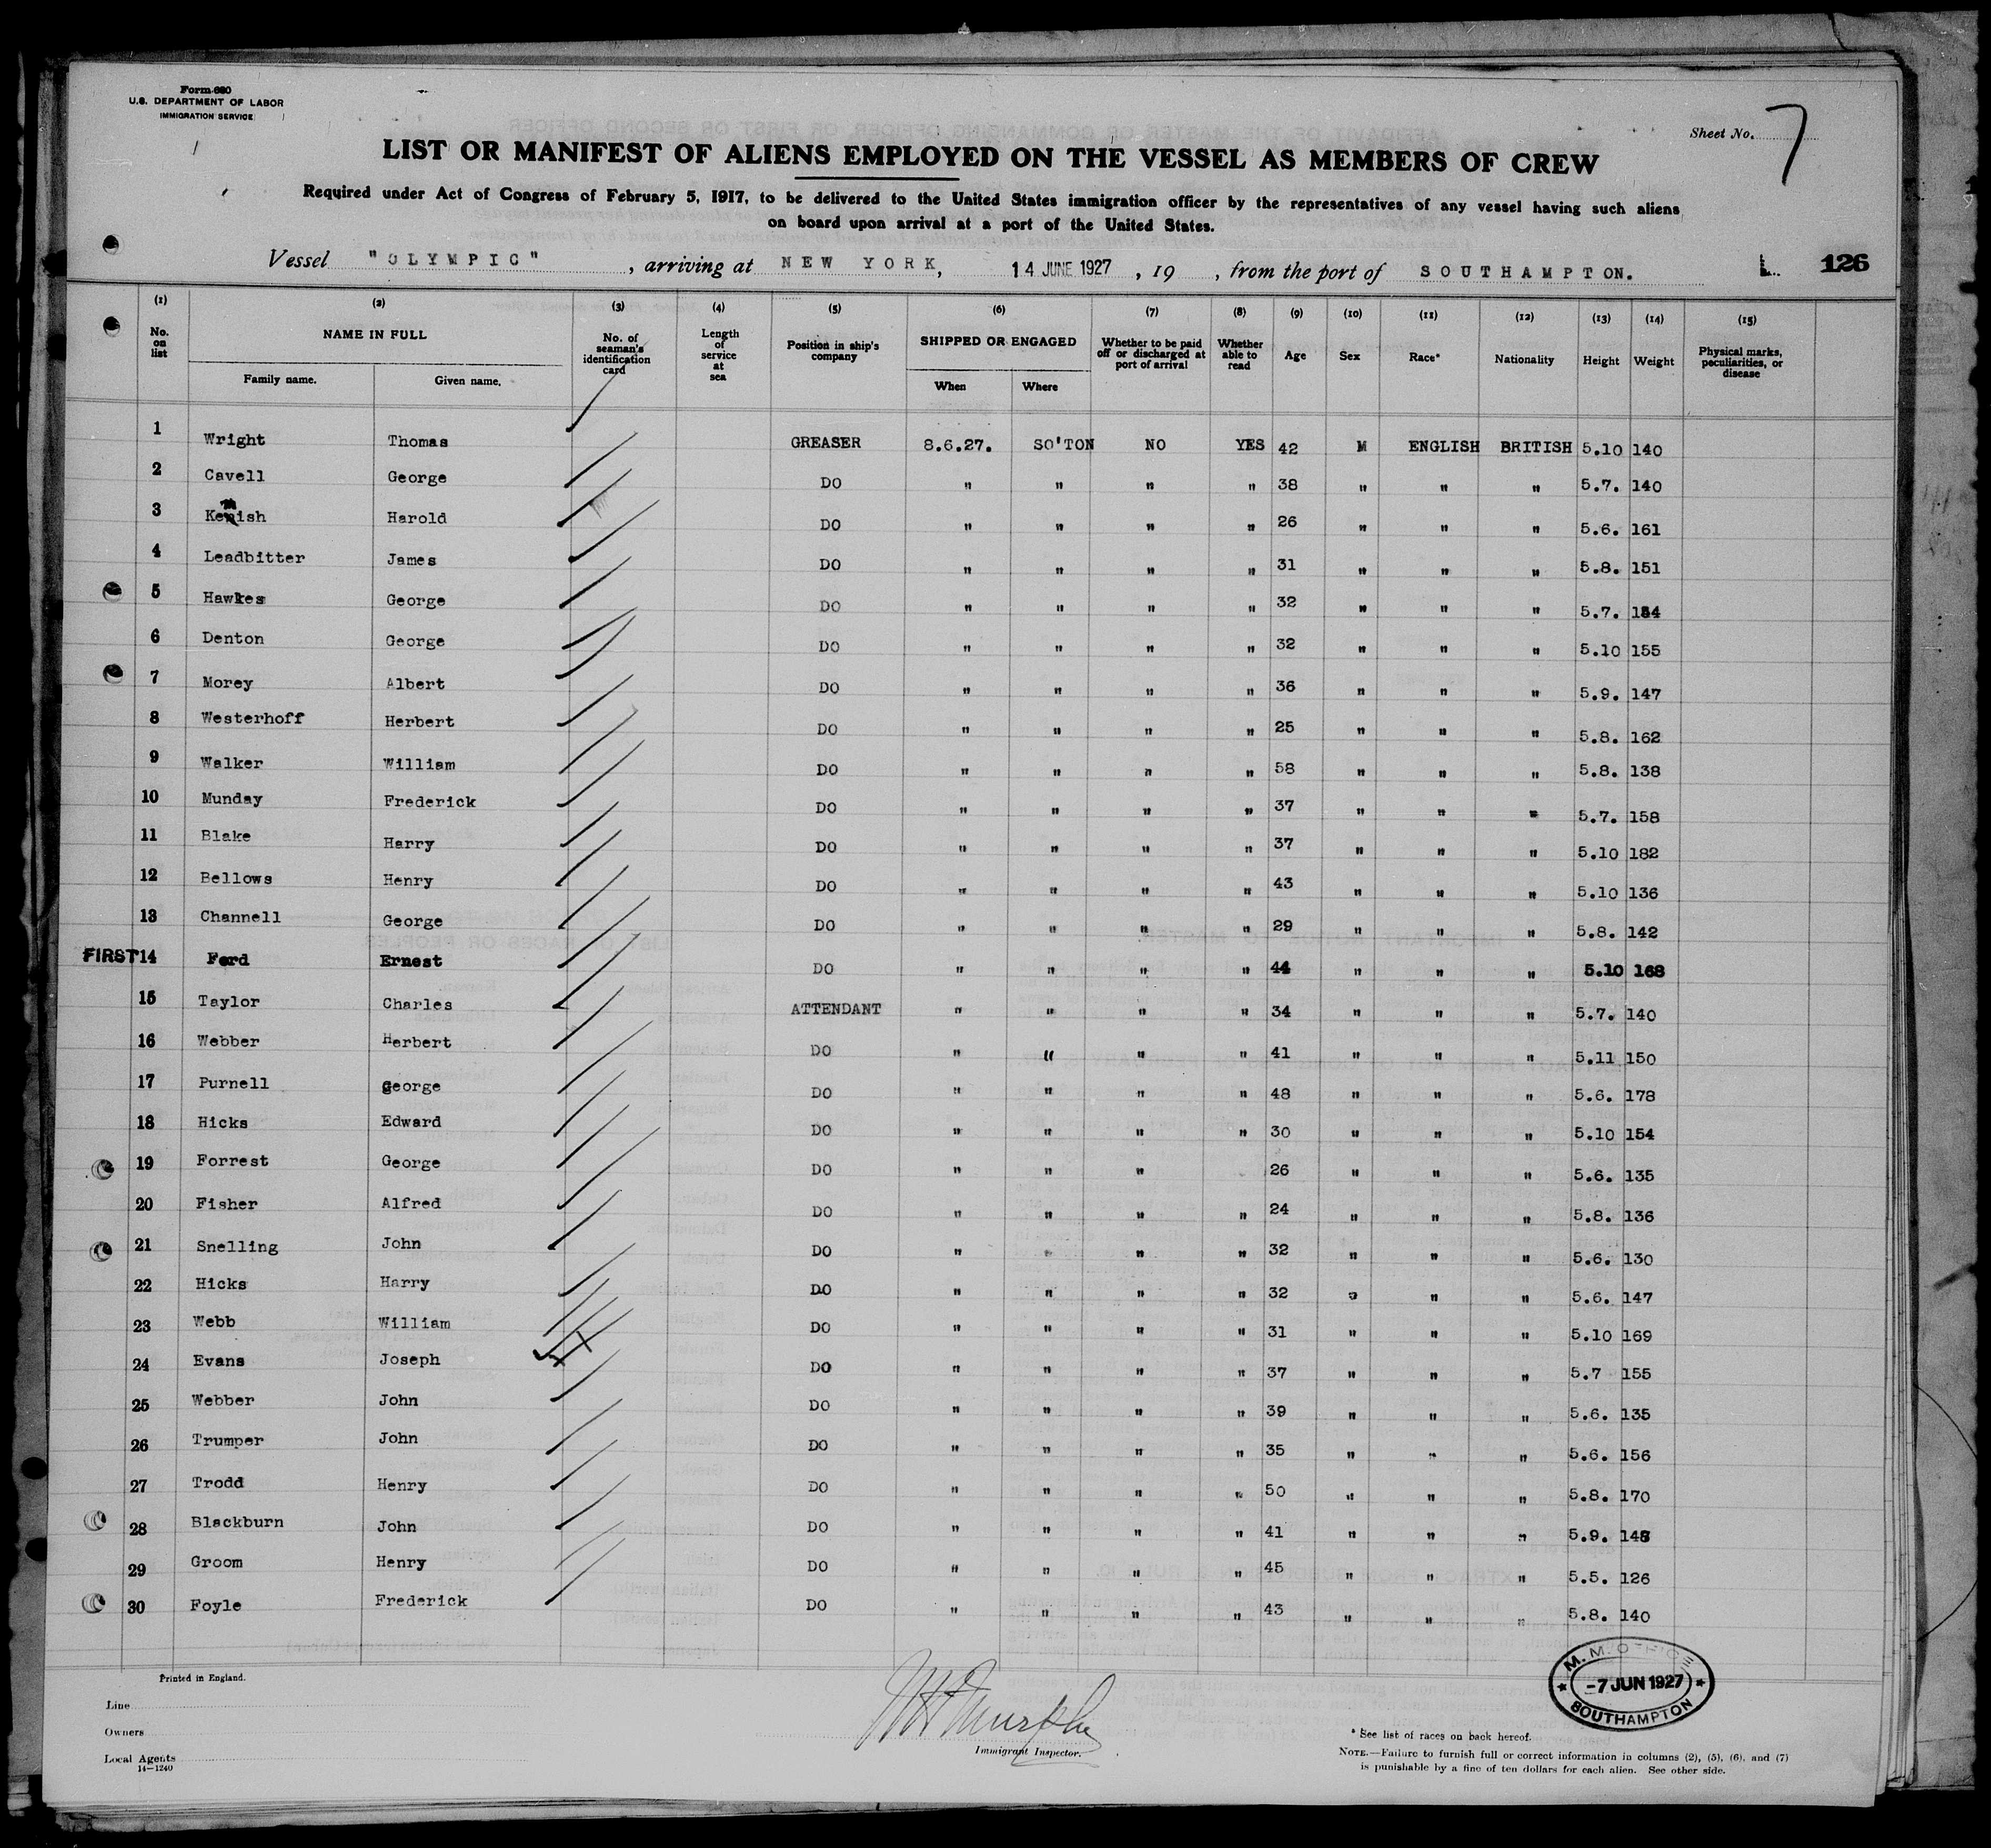 Form 680
U.S. DEPARTMENT OF LABOR
IMMIGRATION SERVICE
Sheet No. 7
LIST OR MANIFEST OF ALIENS EMPLOYED ON THE VESSEL AS MEMBERS OF CREW
Required under Act of Congress of February 5, 1917, to be delivered to the United States immigration officer by the representatives of any vessel having such aliens
on board upon arrival at a port of the United States.
Vessel "OLYMPIC", arriving at NEW YORK, 14 JUNE 1927, 19 , from the port of SOUTHAMPTON. L. 126
(1) (2) (3) (4) (5) (6) (7) (8) (9) (10) (11) (12) (13) (14) (15)
No. on list NAME IN FULL Family name. Given name. No. of seaman's identification card Length of service at sea Position in ship's company SHIPPED OR ENGAGED When Where Whether to be paid off or discharged at port of arrival Whether able to read Age Sex Race* Nationality Height Weight Physical marks, peculiarities, or disease
1 Wright Thomas GREASER 8.6.27. SO'TON NO YES 42 M ENGLISH BRITISH 5.10 140
2 Cavell George DO " " " " 38 " " " 5.7. 140
3 Kenish Harold DO " " " " 26 " " " 5.6. 161
4 Leadbitter James DO " " " " 31 " " " 5.8. 151
5 Hawkes George DO " " " " 32 " " " 5.7.
6 Denton George DO " " " " 32 " " " 5.10 155
7 Morey Albert DO " " " " 36 " " " 5.9. 147
8 Westerhoff Herbert DO " " " " 25 " " " 5.8. 162
9 Walker William DO " " " " 58 " " " 5.8. 138
10 Munday Frederick DO " " " " 37 " " " 5.7. 158
11 Blake Harry DO " " " " 37 " " " 5.10 182
12 Bellows Henry DO " " " " 43 " " " 5.10 136
13 Channell George DO " " " " 29 " " " 5.8. 142
FIRST 14 Ford Ernest DO " " " " 44 " " " 5.10 168
15 Taylor Charles ATTENDANT " " " " 34 " " " 5.7. 140
16 Webber Herbert DO " " " " 41 " " " 5.11 150
17 Purnell george DO " " " " 48 " " " 5.6. 178
18 Hicks Edward DO " " " " 30 " " " 5.10 154
19 Forrest George DO " " " 26 " " " 5.6. 135
20 Fisher Alfred DO " " " " 24 " " " 5.8. 136
21 Snelling John DO " " " " 32 " " " 5.6. 130
22 Hicks Harry DO " " " " 32 " " " 5.6. 147
23 Webb William DO " " " " 31 " " " 5.10 169
24 Evans Joseph DO " " " " 37 " " " 5.7 155
25 Webber John DO " " " " 39 " " " 5.6. 135
26 Trumper John DO " " " " 35 " " " 5.6. 156
27 Trodd Henry DO " " " " 50 " " " 5.8. 170
28 Blackburn John DO " " " " 41 " " " 5.9. 148
29 Groom Henry DO " " " " 45 " " " 5.5. 126
30 Foyle Frederick DO " " " " 43 " " " 5.8. 140
Printed in England.
Line
Owners
Local Agents
14-1240
Murphy
Immigrant Inspector.
M. M. OFFICE
-7 JUN 1927
SOUTHAMPTON
* See list of races on back hereof.
NOTE.—Failure to furnish full or correct information in columns (2), (5), (6), and (7)
is punishable by a fine of ten dollars for each alien. See other side.